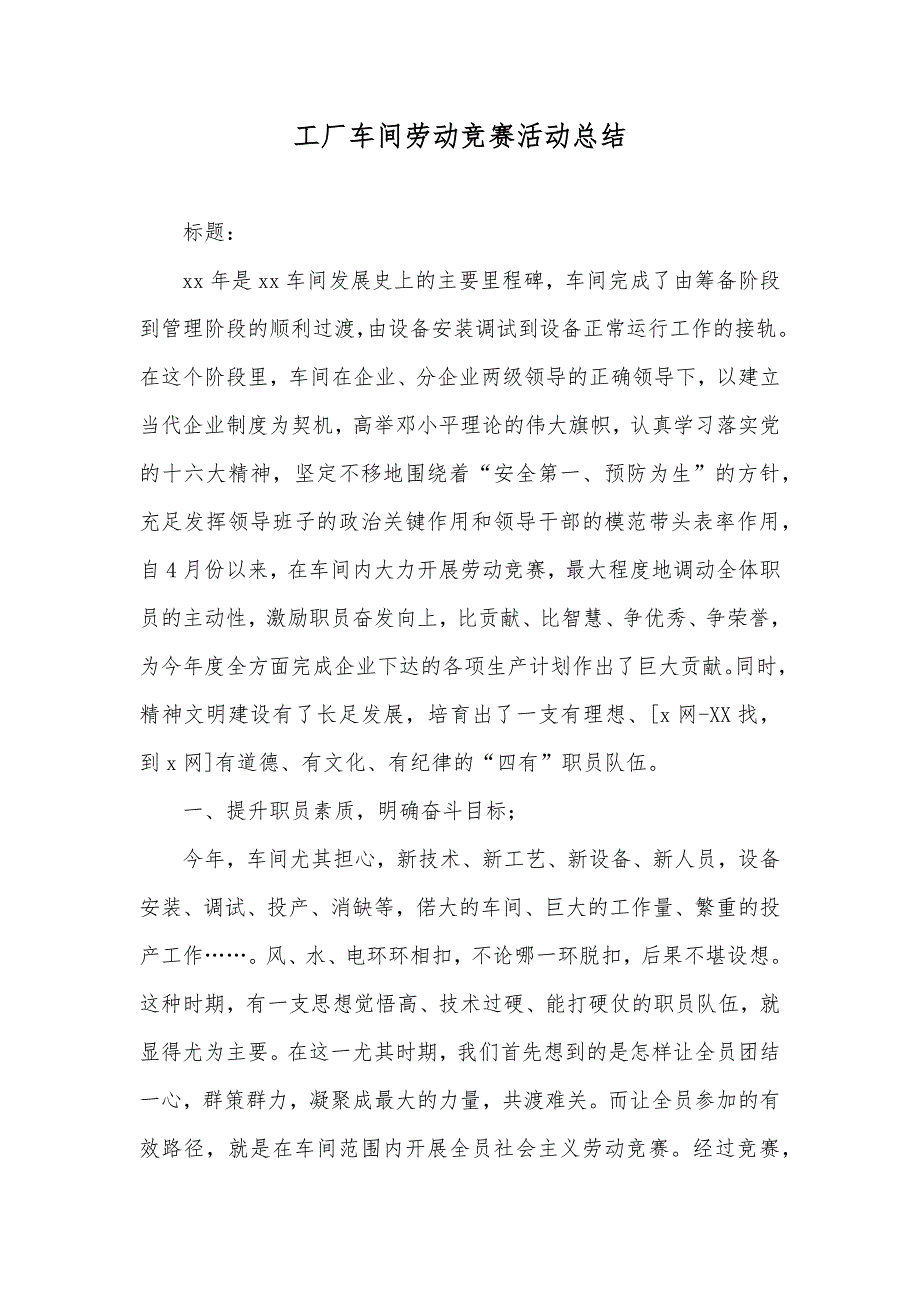 工厂车间劳动竞赛活动总结
标题：
xx 年是 xx 车间发展史上的主要里程碑，车间完成了由筹备阶段
到管理阶段的顺利过渡，由设备安装调试到设备正常运行工作的接轨。
在这个阶段里，车间在企业、分企业两级领导的正确领导下，以建立
当代企业制度为契机，高举邓小平理论的伟大旗帜，认真学习落实党
的十六大精神，坚定不移地围绕着“安全第一、预防为生”的方针，
充足发挥领导班子的政治关键作用和领导干部的模范带头表率作用，
自 4 月份以来，在车间内大力开展劳动竞赛，最大程度地调动全体职
员的主动性，激励职员奋发向上，比贡献、比智慧、争优秀、争荣誉，
为今年度全方面完成企业下达的各项生产计划作出了巨大贡献。同时，
精神文明建设有了长足发展，培育出了一支有理想、[x 网-XX 找，
到 x 网]有道德、有文化、有纪律的“四有”职员队伍。
一、提升职员素质，明确奋斗目标；
今年，车间尤其担心，新技术、新工艺、新设备、新人员，设备
安装、调试、投产、消缺等，偌大的车间、巨大的工作量、繁重的投
产工作……。风、水、电环环相扣，不论哪一环脱扣，后果不堪设想。
这种时期，有一支思想觉悟高、技术过硬、能打硬仗的职员队伍，就
显得尤为主要。在这一尤其时期，我们首先想到的是怎样让全员团结
一心，群策群力，凝聚成最大的力量，共渡难关。而让全员参加的有
效路径，就是在车间范围内开展全员社会主义劳动竞赛。经过竞赛，